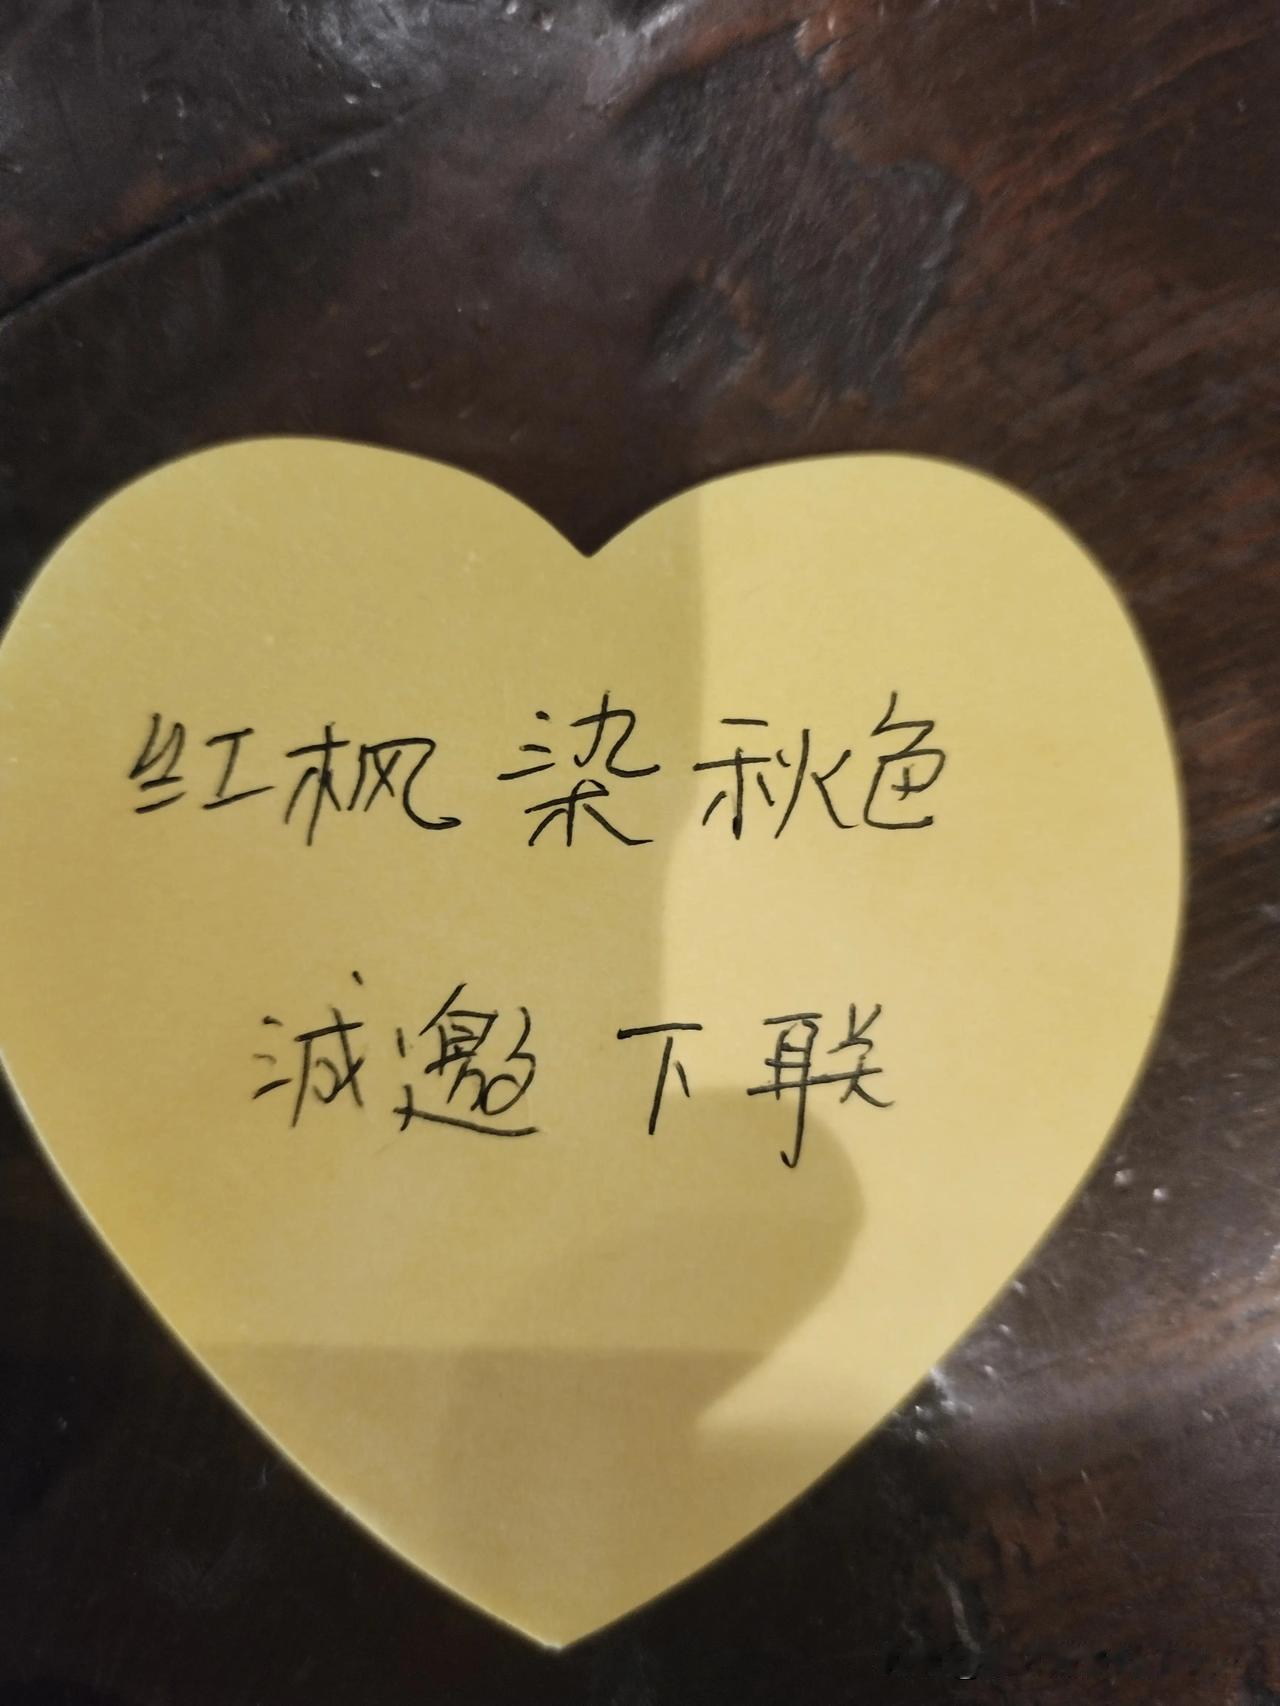 红枫染秋色
诚邀下联